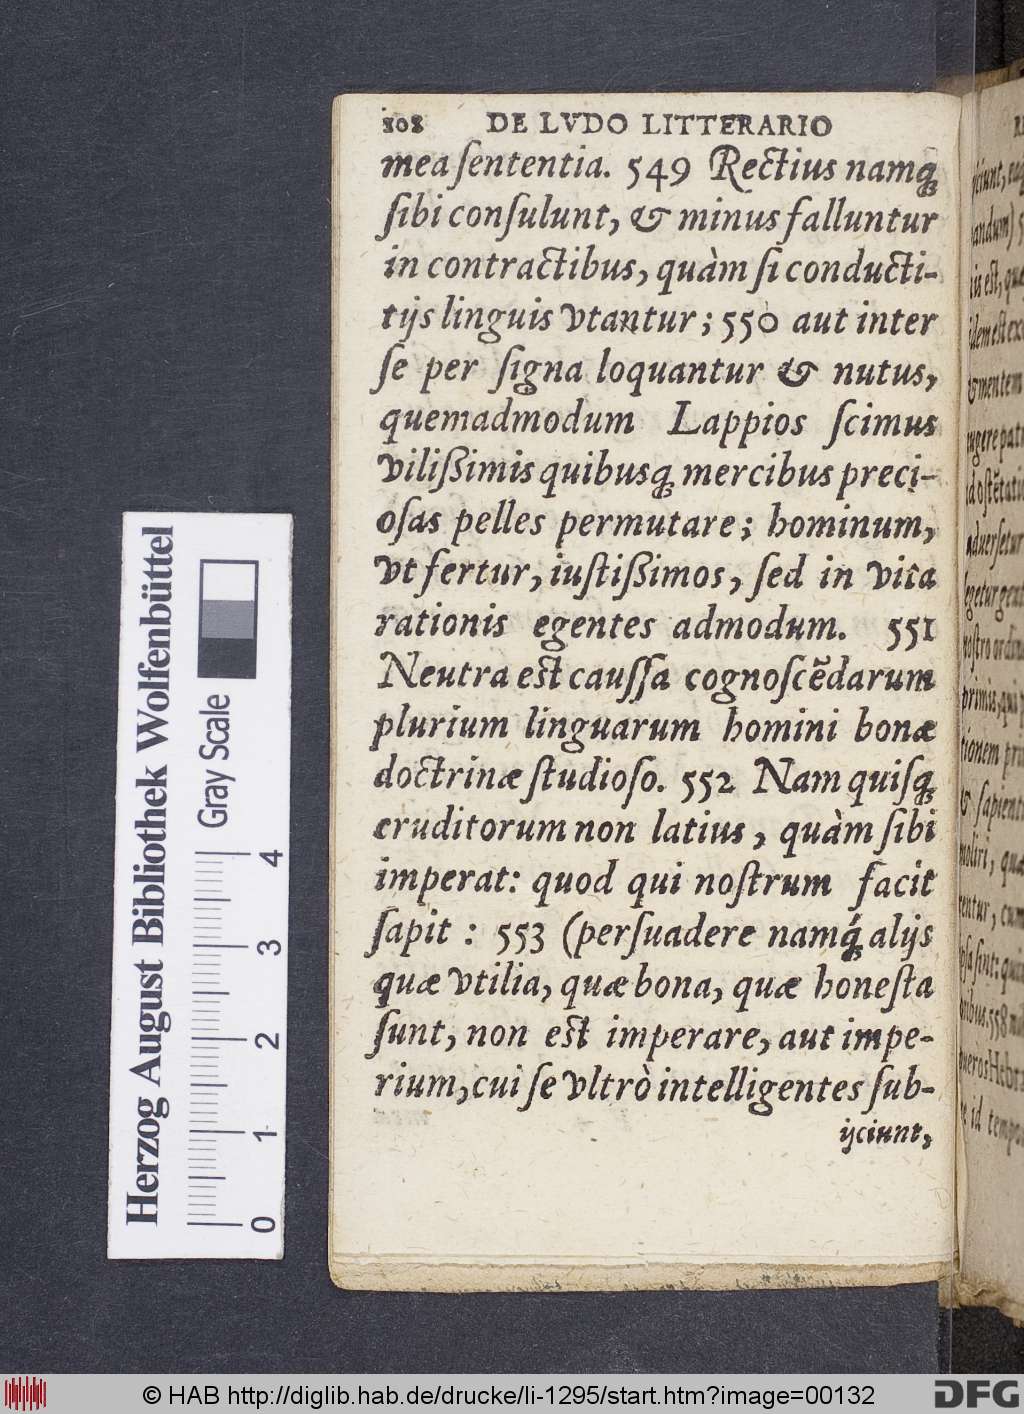 108 DE LVDO LITTERARIO
mea ſententia. 549 Rectius namq́
ſibi conſulunt, & minus falluntur
in contractibus, quàm ſi conducti-
tijs linguis vtantur; 550 aut inter
ſe per ſigna loquantur & nutus,
quemadmodum Lappios ſcimus
viliſſimis quibusq́ mercibus preci-
oſas pelles permutare; hominum,
vt fertur, iuſtiſſimos, ſed in vita
rationis egentes admodum. 551
Neutra eſt cauſſa cognoſcẽdarum
plurium linguarum homini bonæ
doctrinæ ſtudioſo. 552 Nam quiſq́
eruditorum non latius, quàm ſibi
imperat: quod qui noſtrum facit
ſapit: 553 (perſuadere namq́ alijs
quæ vtilia, quæ bona, quæ honeſta
ſunt, non eſt imperare, aut impe-
rium, cui ſe vltrò intelligentes ſub-
ijciunt,
Herzog August Bibliothek Wolfenbüttel
Gray Scale
0 1 2 3 4
© HAB http://diglib.hab.de/drucke/li-1295/start.htm?image=00132
DFG